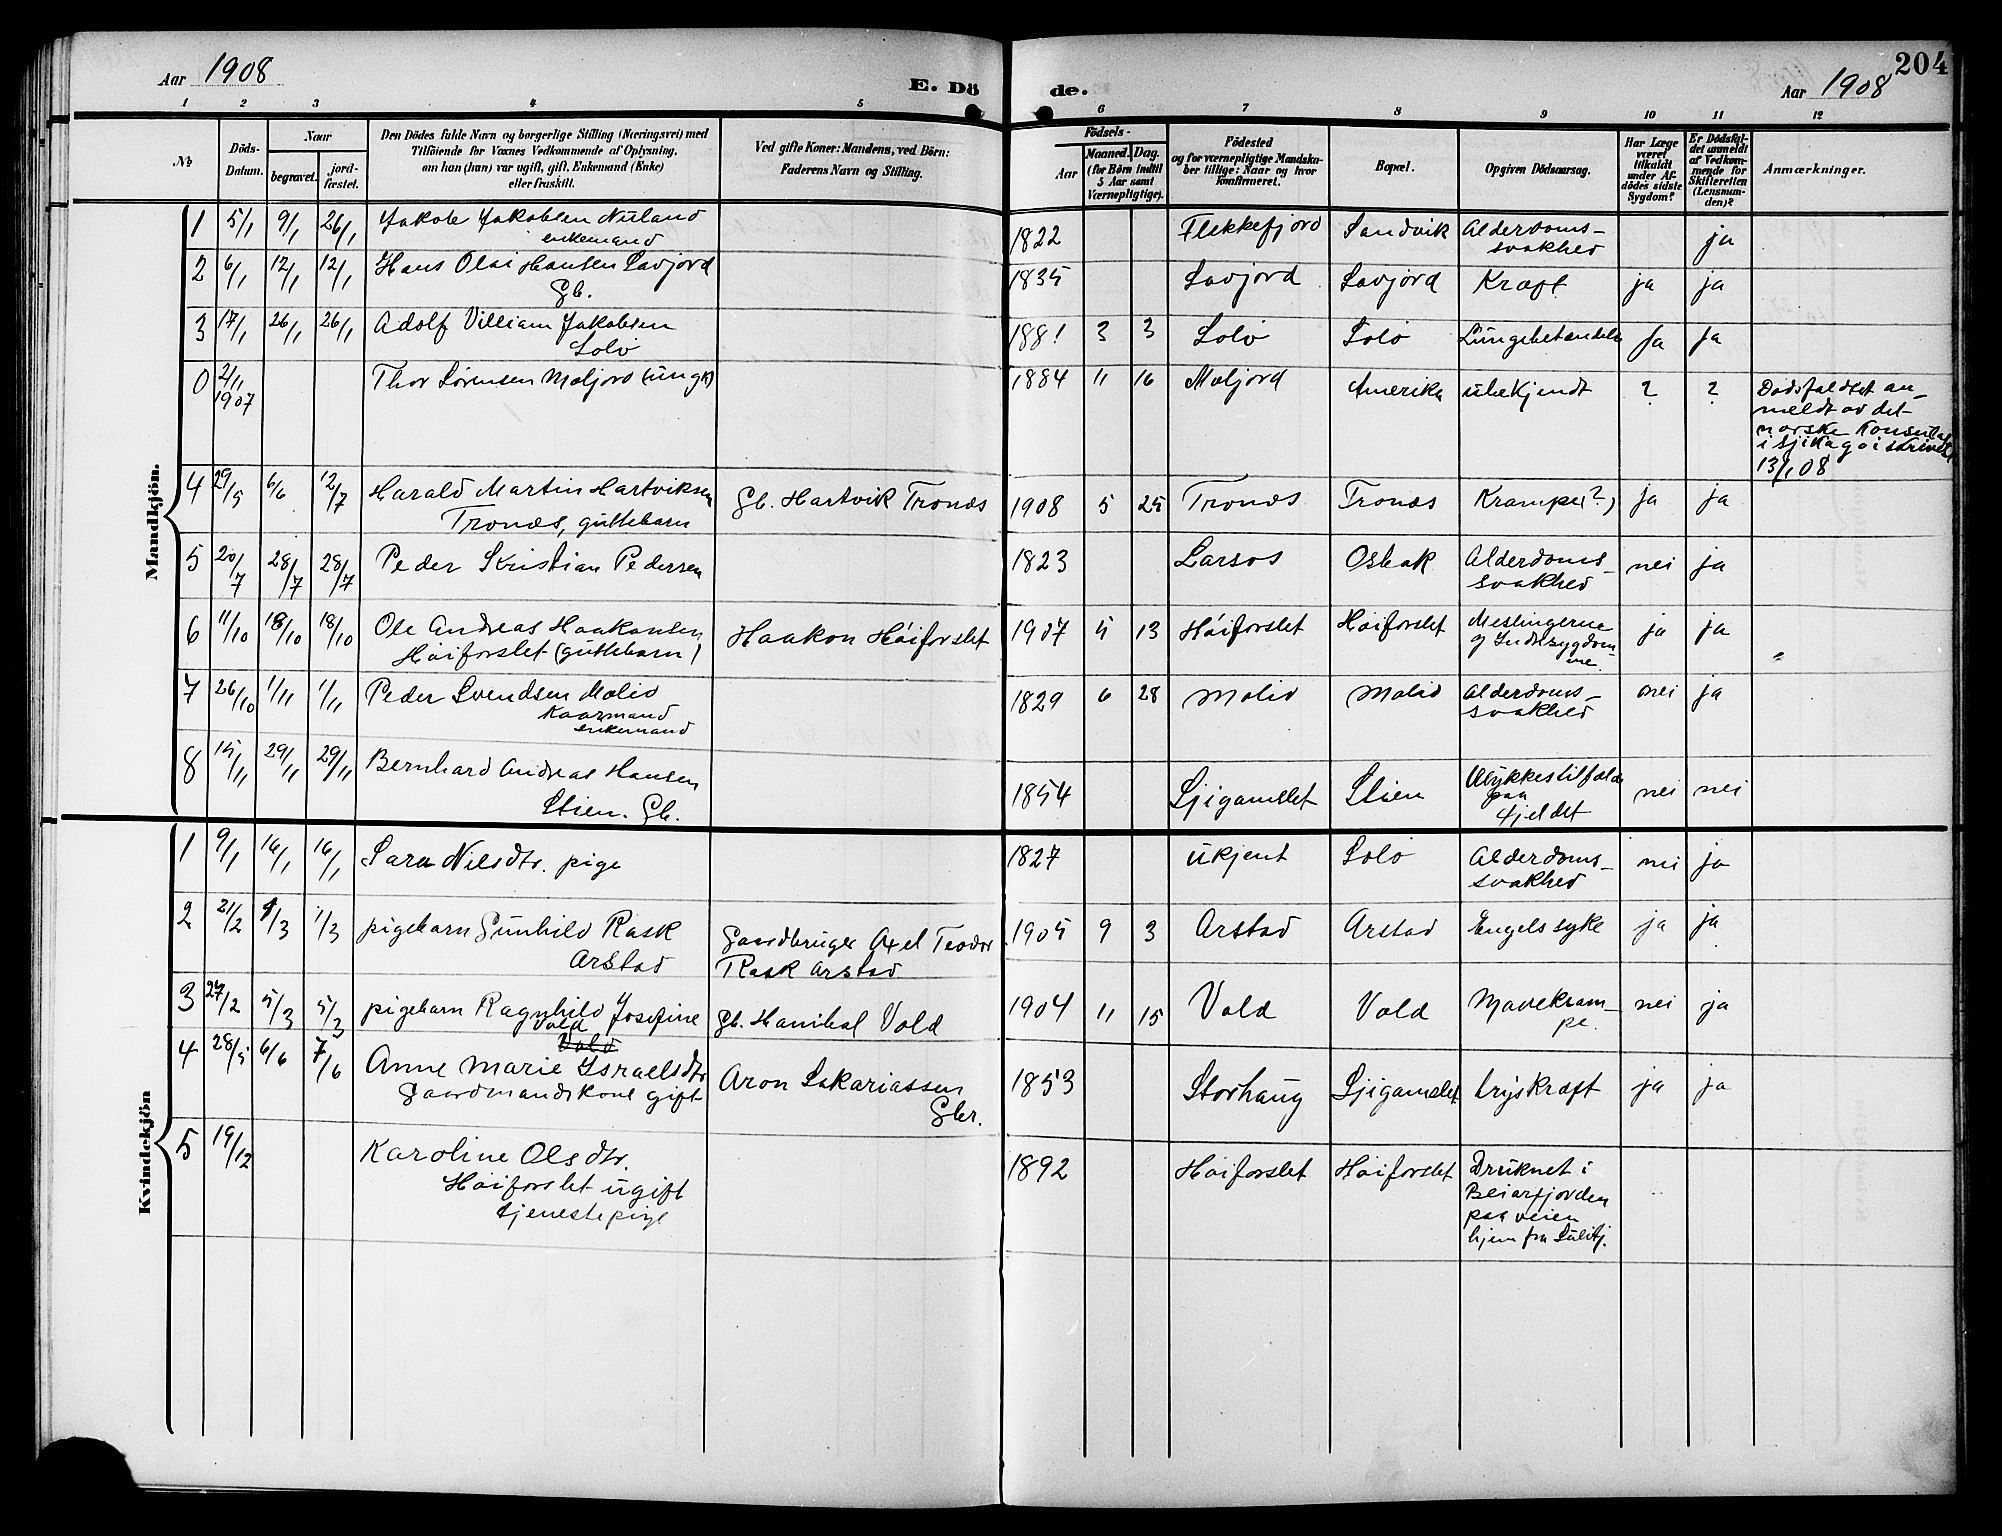 Aar 1908
E. Dö
de.
Aar 1908
204
1 2 3 4 5 6 7 8 9 10 11 12
No
Döds-
Datum.
Naar
begravet.
jord-
fæstet.
Den Dödes fulde Navn og borgerlige Stilling (Næringsvei) med
Tilföiende for Voxnes Vedkommende af Oplysning,
om han (hun) var ugift, gift, Enkemand (Enke)
eller fraskilt.
Ved gifte Koner: Mandens, ved Börn:
Faderens Navn og Stilling.
Födsels-
Aar
Maaned.
Dag.
(for Börn indtil
5 Aar samt
Værnepligtige).
Födested
og for værnepligtige Mandska-
ber tillige: Naar og hvor
konfirmeret.
Bopæl.
Opgiven Dödsaarsag.
Har Læge
været
tilkaldt
under Af-
dödes sidste
Sygdom?
Er Dödsfal-
det anmeldt
af Vedkom-
mende for
Skifteretten
(Lensman-
den)?
Anmærkninger.
Mandkjön.
1 5/1 9/1 26/1 Jakob Jakobsen Nuland
enkemand
1822 Flekkefjord Sandvik Alderdoms-
svakhed
ja
2 6/1 12/1 12/1 Hans Olai Hansen Savjord
Gb.
1835 Savjord Savjord Kræft ja ja
3 17/1 26/1 26/1 Adolf Villiam Jakobsen
Solø
1881 3 3 Solø Solø Lungebetændelse Ja Ja
0 2/11
1907
Thor Sørensen Moljord (ungk)
1884 11 16 Moljord Amerika ubekjendt ? ?
Dødsfaldtet an-
meldt av det
norske Konsulat
i Sjikago i skrivelse
13/1 08
4 29/5 6/6 12/7 Harald Martin Hartviksen
Tronæs, guttebarn
Gb. Hartvik Tronæs
1908 5 25 Tronæs Tronæs Krampe(?) ja ja
5 20/7 28/7 28/7 Peder Kristian Pedersen
1823 Larsos Osbak Alderdoms-
svakhed
nei ja
6 11/10 18/10 18/10 Ole Andreas Haakonsen
Høiforslet (guttebarn)
Haakon Høiforslet
1907 5 13 Høiforslet Høiforslet Meslingerne
og Indresygdom-
me.
ja ja
7 26/10 1/11 1/11 Peder Svendsen Molid
Kaarmand
enkemand
1829 6 28 Molid Molid Alderdoms-
svakhed
nei ja
8 15/11 29/11 29/11 Bernhard Andreas Hansen
Stien. Gb.
1854 Sjigamslet Stien Ulykkestilfælde
paa
fjeldet
nei nei
Kvindekjön
1 9/1 16/1 16/1 Sara Nilsdtr. pige
1827 ukjent Solø Alderdoms-
svakhed
nei ja
2 21/2 1/3 1/3 pigebarn Gunhild Rask
Arstad
Gaardbruger Axel Teodor
Rask Arstad
1905 9 3 Arstad Arstad Engelsk syke ja ja
3 27/2 5/3 5/3 pigebarn Ragnhild Josefine
Vold
Gb. Hanibal Vold
1904 11 15 Vold Vold Mavekram-
pe.
nei ja
Vold
4 28/5 6/6 7/6 Anne Marie Israelsdtr
Gaardmandskone gift
Aron Sakariassen
Gbr.
1853 Storhaug Sjigamslet brystkræft ja ja
5 19/12 Karoline Olsdtr.
Høiforslet ugift
tjenestepige
1892 Høiforslet Høiforslet Druknet i
Beiarfjorden
paa veien
hjem fra Sulitj.